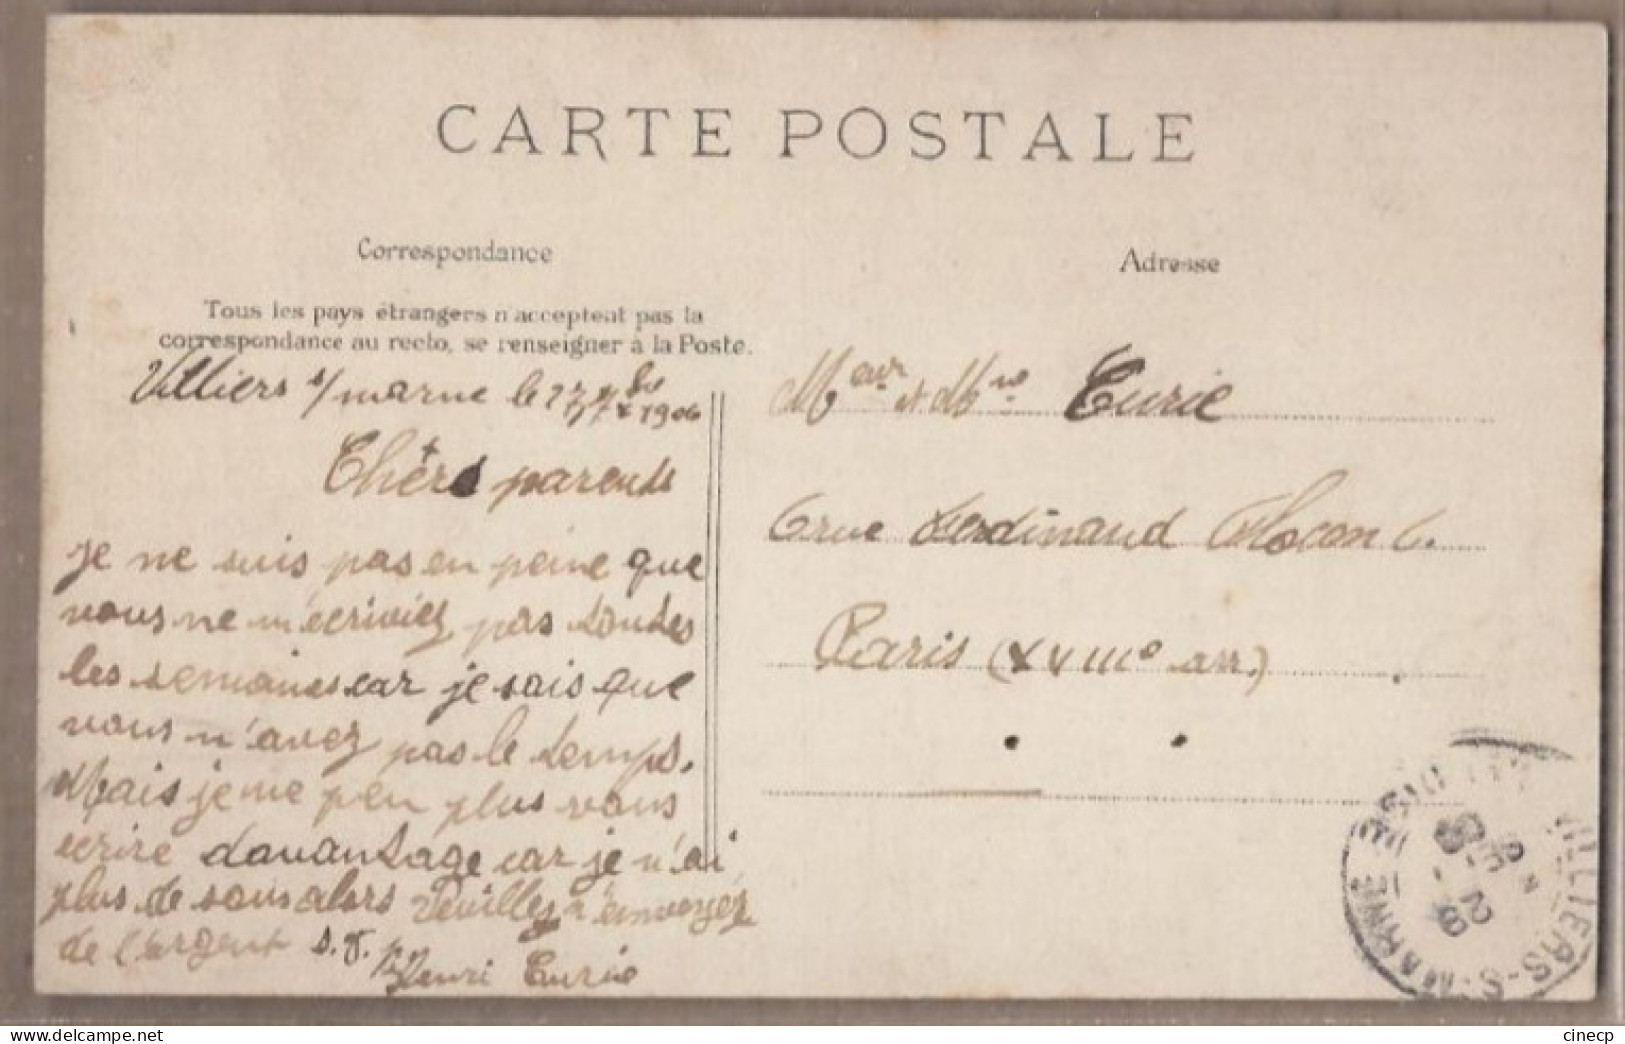 CARTE POSTALE
Correspondance
Adresse
Tous les pays étrangers n'acceptent pas la
correspondance au recto, se renseigner à la Poste.
Villiers s/ marne le 1906
Chèrs parents
Je ne suis pas en peine que
vous ne m'écriviez pas toutes
les semaines car je sais que
vous n'avez pas le temps.
Mais je ne peu plus vous
écrire davantage car je n'ai
plus de sous alors Veuillez m'envoyez
de l'argent s. v. p.
Henri Curie
Meur et Mme Curie
6 rue Ferdinand Flocon 6.
Paris (XVIIIe arr.)
VILLIERS-S-MARNE
cinecp